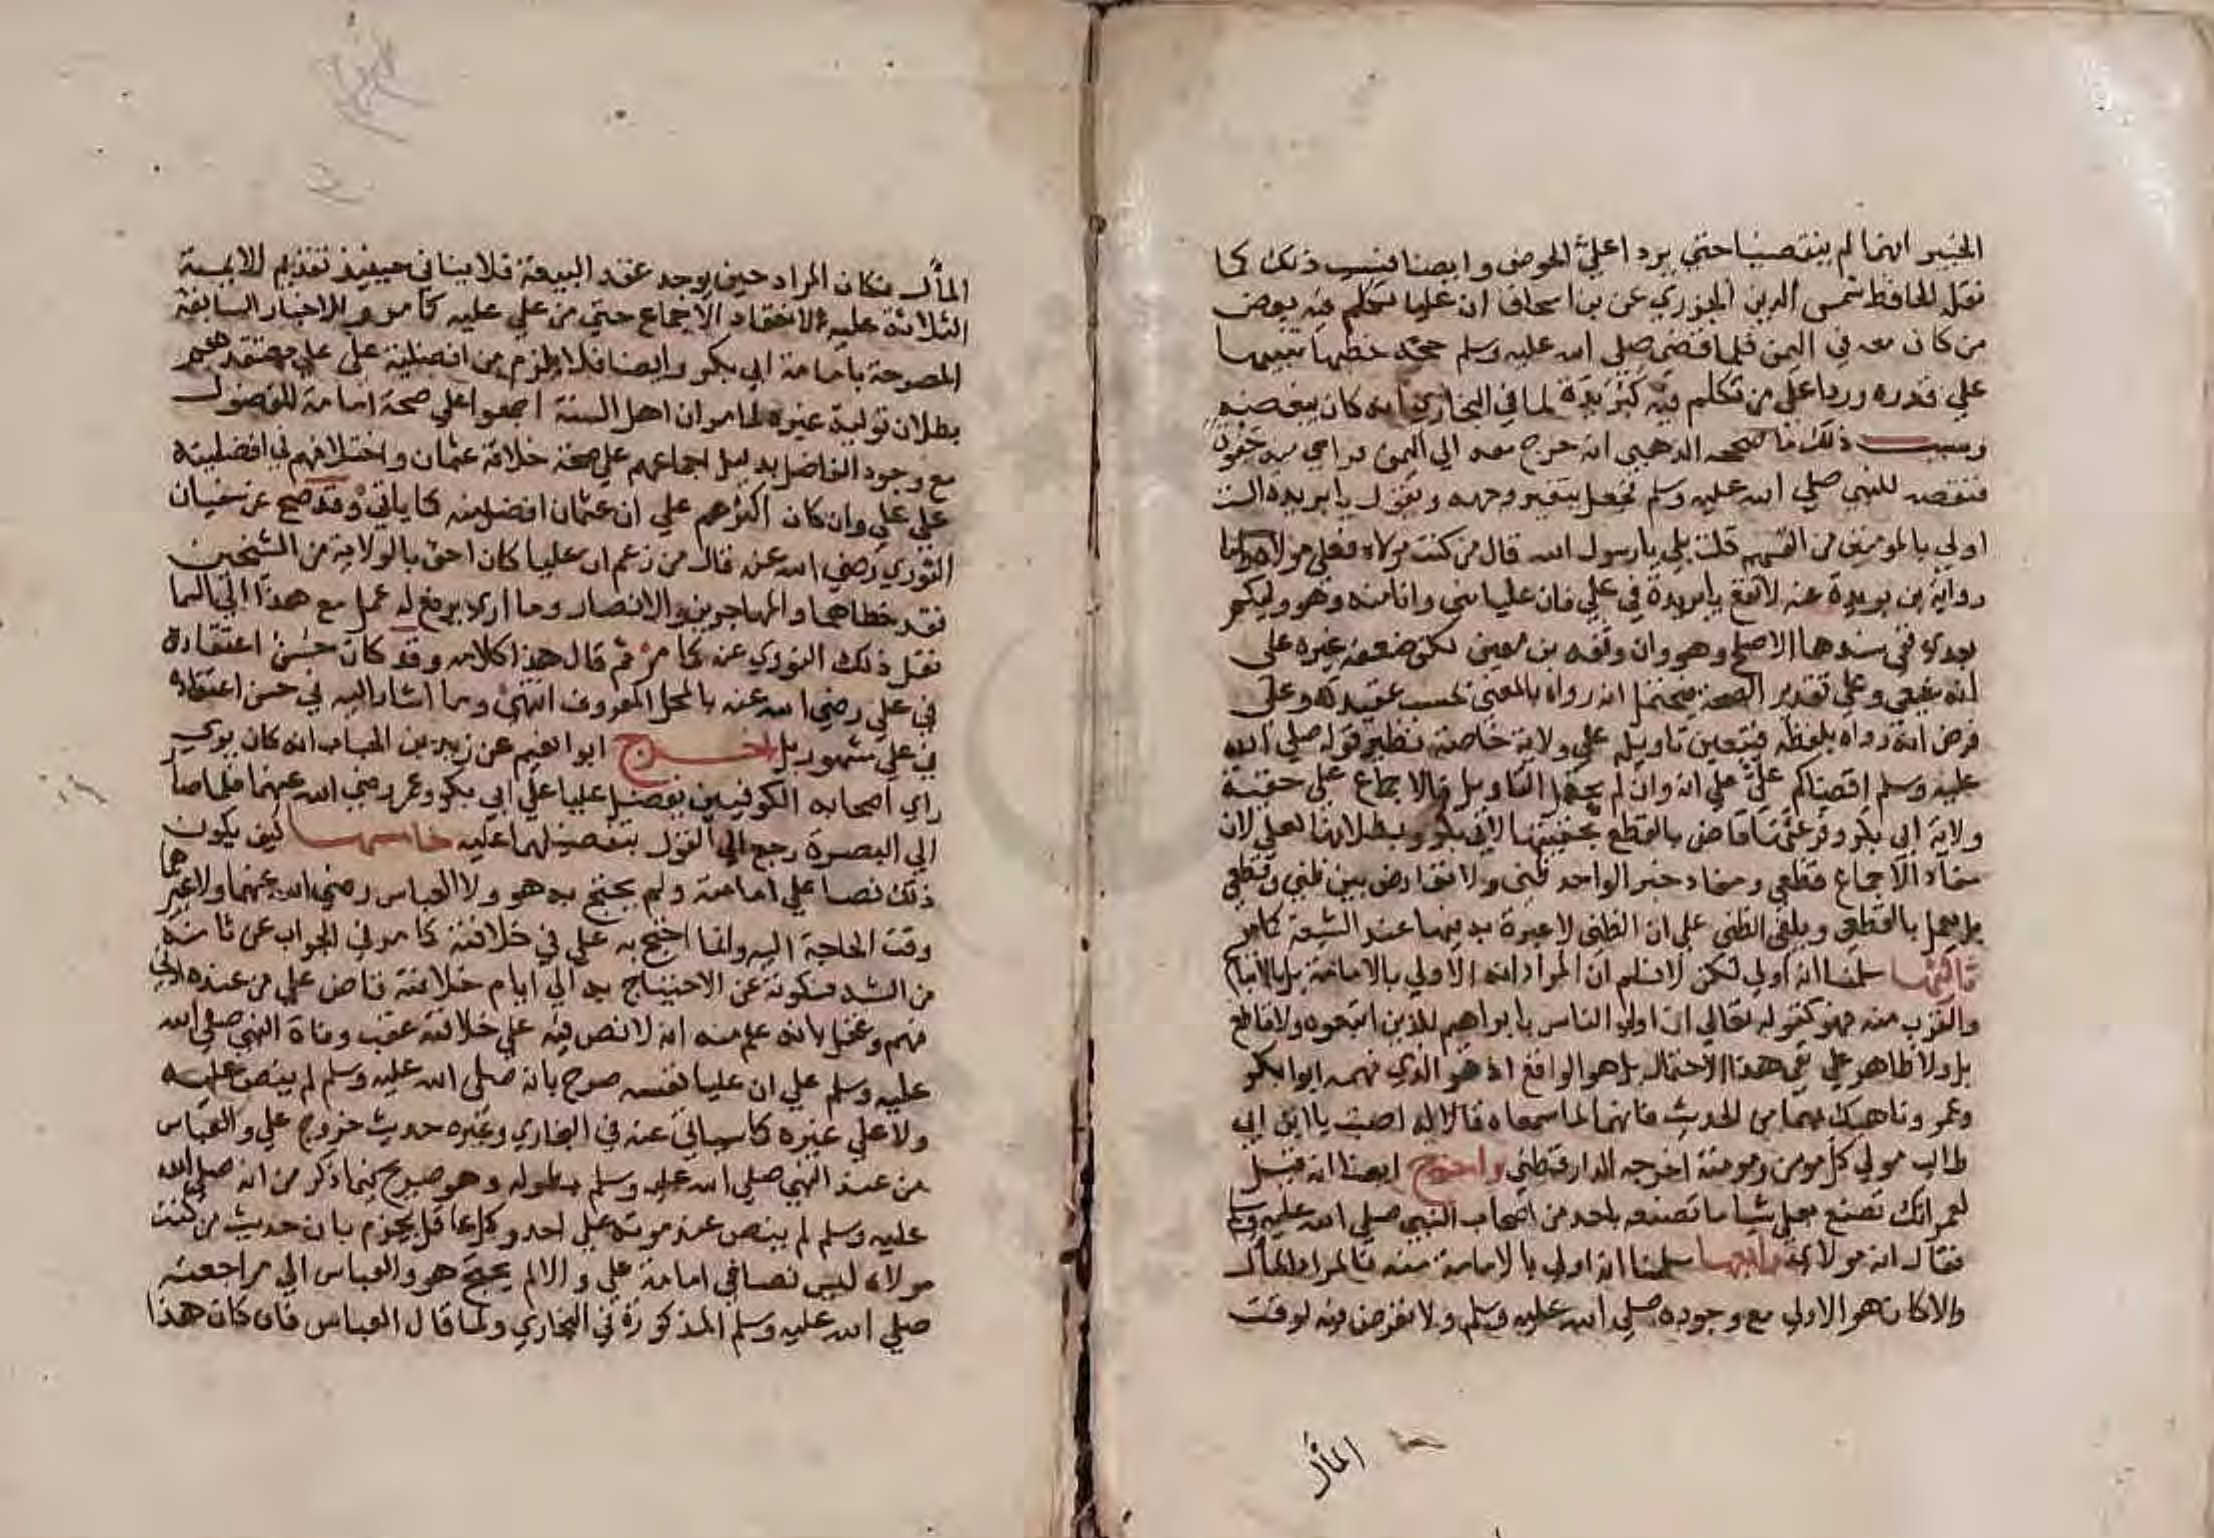 الخبير انهما لم ينفصيا حتي يردا علي الحوض وايضا فسبب ذلك كما
نقل الحافظ شمس الدين الجزري عن بن اسحاق ان عليا تكلم فيه بعض
من كان معه في اليمن فلما قضي صلي الله عليه وسلم حجه خطبها تنبيها
علي قدره وردا علي من تكلم فيه كبريدة لما في البخاري انه كان يبغضه
وسبب ذلك ما صححه الذهبي انه خرج معه الي اليمن فراي منه جفوة
فنقصه للنبي صلي الله عليه وسلم فجعل يتغير وجهه ويقول يا بريده الست
اولي بالمومنين من انفسهم قلت بلي يا رسول الله قال من كنت مولاه فعلي مولاه واما
رواية بن بريدة عنه لا تقع يا بريدة في علي فان عليا مني وانا منه وهو وليكم
بعدي ففي سندها الاصلح وهو وان وثقه بن معين لكن ضعفه غيره علي
انه شيعي وعلي تقدير الصحة فيحتمل انه رواه بالمعني بحسب عقيدته وعلي
فرض انه رواه بلفظه فيتعين تاويله علي ولاية خاصة نظير قوله صلي الله
عليه وسلم اقضاكم علي علي انه وان لم يحتمل التاويل فالاجماع علي حقية
ولاية ابي بكر وفرعيها قاض بالقطع بحقيتها لابي بكر وبطلانها لعلي لان
مفاد الاجماع قطعي ومفاد خبر الواحد ظني ولا تعارض بين ظني وقطعي
بل يعمل بالقطعي ويلغي الظني علي ان الظني لا عبرة به فيها عند الشيعة كما مر
ثالثها سلمنا انه اولي لكن لا نسلم ان المراد انه الاولي بالامامة بل بالاتباع
والقرب منه فهو كقوله تعالي ان اولي الناس بابراهيم للذين اتبعوه ولا قاطع
بل ولا ظاهر علي نفي هذا الاحتمال بل هو الواقع اذ هو الذي فهمه ابو بكر
وعمر وناهيك بهما من الحديث فانهما لما سمعاه قالا له امسيت يا ابن ابي
طالب مولي كل مومن ومومنة اخرجه الدارقطني واخرج ايضا انه قيل
لعمر انك تصنع بعلي شيا ما تصنعه باحد من اصحاب النبي صلي الله عليه وسلم
فقال انه مولاي رابعها سلمنا انه اولي بالامامة منه فالمراد المآل
والا كان هو الاولي مع وجوده صلي الله عليه وسلم ولا تعرض فيه لوقت
المآل
المآل فكان المراد حين يوجد عقد البيعة فلا ينافي حينيذ تقديم الايمة
الثلاثة عليه لانعقاد الاجماع حتي من علي عليه كما مر وللاخبار السابقة
المصرحة بامامة ابي بكر وايضا فلا يلزم من افضلية علي علي معتقدهم
بطلان تولية غيره لما مر ان اهل السنة اجمعوا علي صحة امامة المفضول
مع وجود الفاضل بدليل اجماعهم علي صحة خلافة عثمان واختلافهم في افضليته
علي علي وان كان اكثرهم علي ان عثمان افضل منه كما ياتي وقد صح عن سفيان
الثوري رضي الله عنه قال من زعم ان عليا كان احق بالولاية من الشيخين
فقد خطاهما والمهاجرين والانصار وما اراه يرفع له عمل مع هذا الي السما
نقل ذلك النووي عنه كما مر ثم قال هذا كلامه وقد كان حسن اعتقاده
في علي رضي الله عنه بالمحل المعروف انتهي وما اشار اليه في حسن اعتقاده
في علي مشهور بل اخرج ابو نعيم عن زيد بن الحباب انه كان يري
راي اصحابه الكوفيين بفضل عليا علي ابي بكر وعمر رضي الله عنهما فلما صار
الي البصرة رجع الي القول بتفضيلهما عليه خامسها كيف يكون
ذلك نصا علي امامته ولم يحتج به هو ولا العباس رضي الله عنهما ولا غيرهما
وقت الحاجة اليه وانما احتج به علي في خلافته كما مر في الجواب عن الثامنة
من الشبه فسكوته عن الاحتجاج به الي ايام خلافته قاض علي من عنده ادني
فهم وعقل بانه علم منه انه لا نص فيه علي خلافته عقب وفاة النبي صلي الله
عليه وسلم علي ان عليا نفسه صرح بانه صلي الله عليه وسلم لم ينص عليه
ولا علي غيره كما سياتي عنه في البخاري وغيره حديث خروج علي والعباس
من عند النبي صلي الله عليه وسلم بطوله وهو صريح فيما ذكر من انه صلي الله
عليه وسلم لم ينص عند موته علي احد وكل عاقل يجزم بان حديث من كنت
مولاه ليس نصا في امامة علي والا لم يحتج هو والعباس الي مراجعته
صلي الله عليه وسلم المذكورة في البخاري ولما قال العباس فان كان هذا